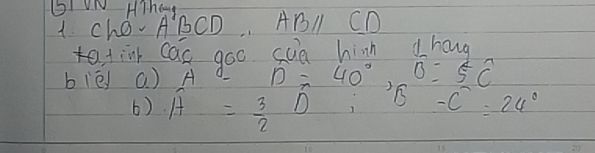 BTVN H thang
1. Cho A BCD, AB // CD
tính các góc của hình thang
biết a) Â - D̂ = 40°, B̂ = 5 Ĉ
b) Â = 3/2 D̂ ; B̂ - Ĉ = 24°